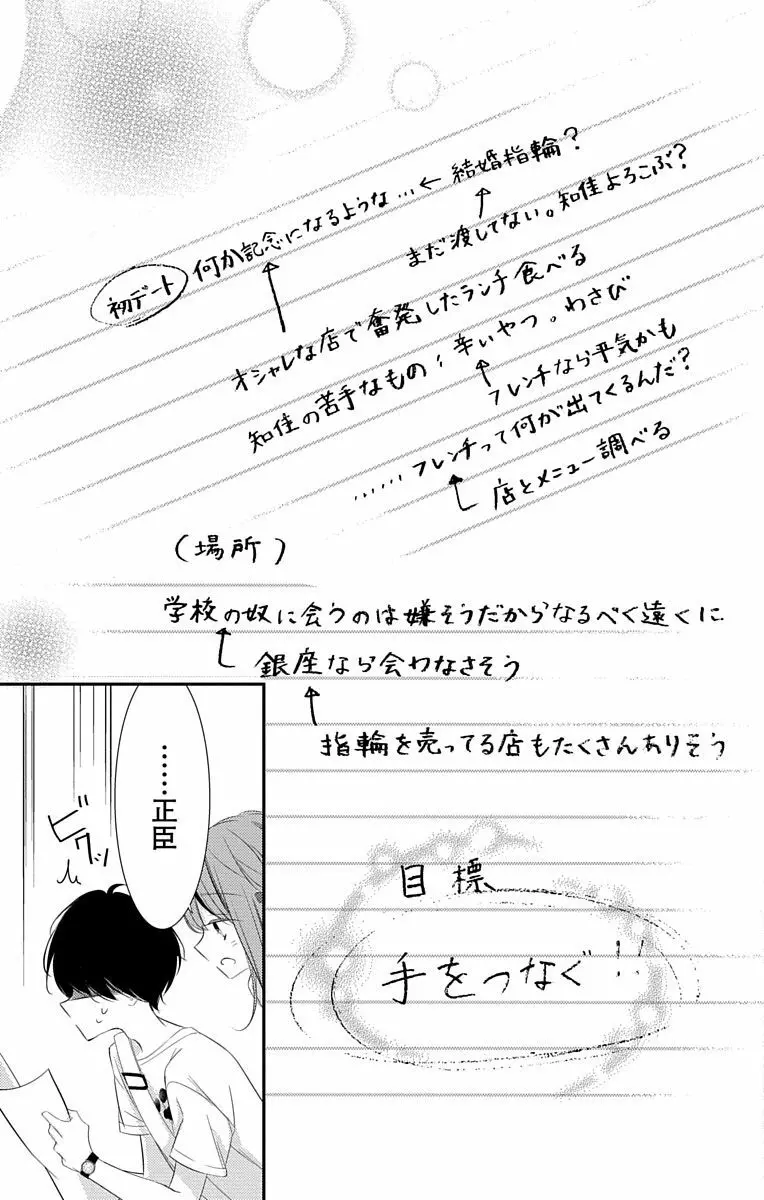 初デート 何か記念になるような…← 結婚指輪?
まだ渡してない。知佳よろこぶ?
オシャレな店で奮発したランチ食べる
知佳の苦手なもの；辛いやつ。わさび
フレンチなら平気かも
……フレンチって何が出てくるんだ?
店とメニュー調べる
(場所)
学校の奴に会うのは嫌そうだからなるべく遠くに
銀座なら会わなさそう
指輪を売ってる店もたくさんありそう
目標
手をつなぐ!!
……正臣
ビクッ